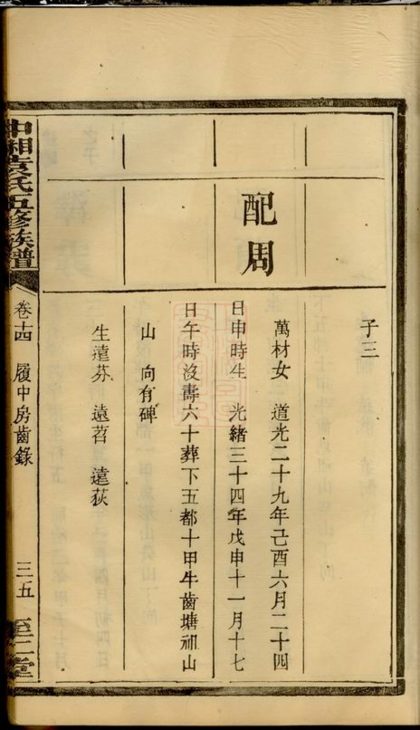 子三
配周
萬材女 道光二十九年己酉六月二十四
日申時生 光緒三十四年戊申十一月十七
日午時沒壽六十葬下五都十甲牛齒塘祖山
山 向有碑
生遠芬 遠苕 遠荻
中湘袁氏五修族譜
卷十四 履中房齒錄
三五 至一堂